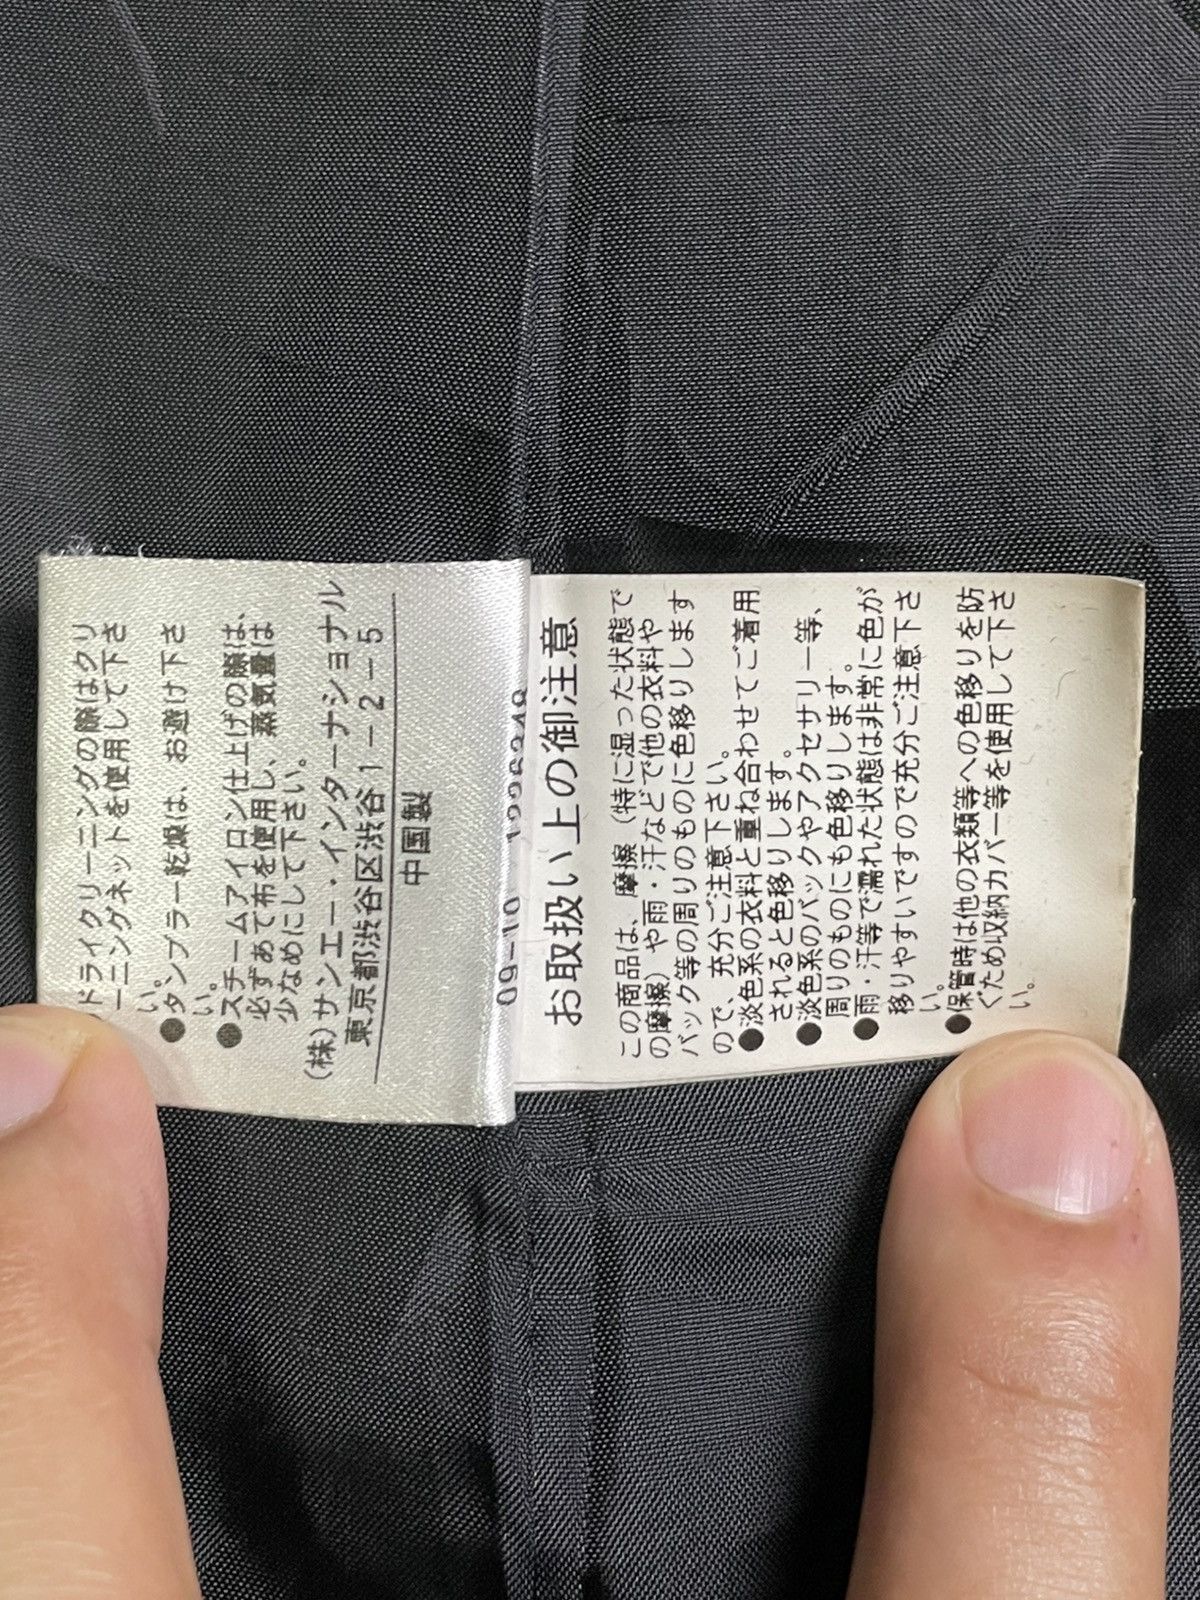 ドライクリーニングの際はクリ
ーニングネットを使用して下さ
い。
●タンブラー乾燥は、お避け下さ
い。
●スチームアイロン仕上げの際は、
必ずあて布を使用し、蒸気量は
少なめにして下さい。
(株)サンエー・インターナショナル
東京都渋谷区渋谷1-2-5
中国製
09-10
お取扱い上の御注意
この商品は、摩擦(特に湿った状態で
の摩擦)や雨・汗などで他の衣料や
バック等の周りのものに色移りします
ので、充分ご注意下さい。
●淡色系の衣料と重ね合わせてご着用
されると色移りします。
●淡色系のバックやアクセサリー等、
周りのものにも色移りします。
●雨・汗等で濡れた状態は非常に色が
移りやすいですので充分ご注意下さ
い。
●保管時は他の衣類等への色移りを防
ぐため収納カバー等を使用して下さ
い。